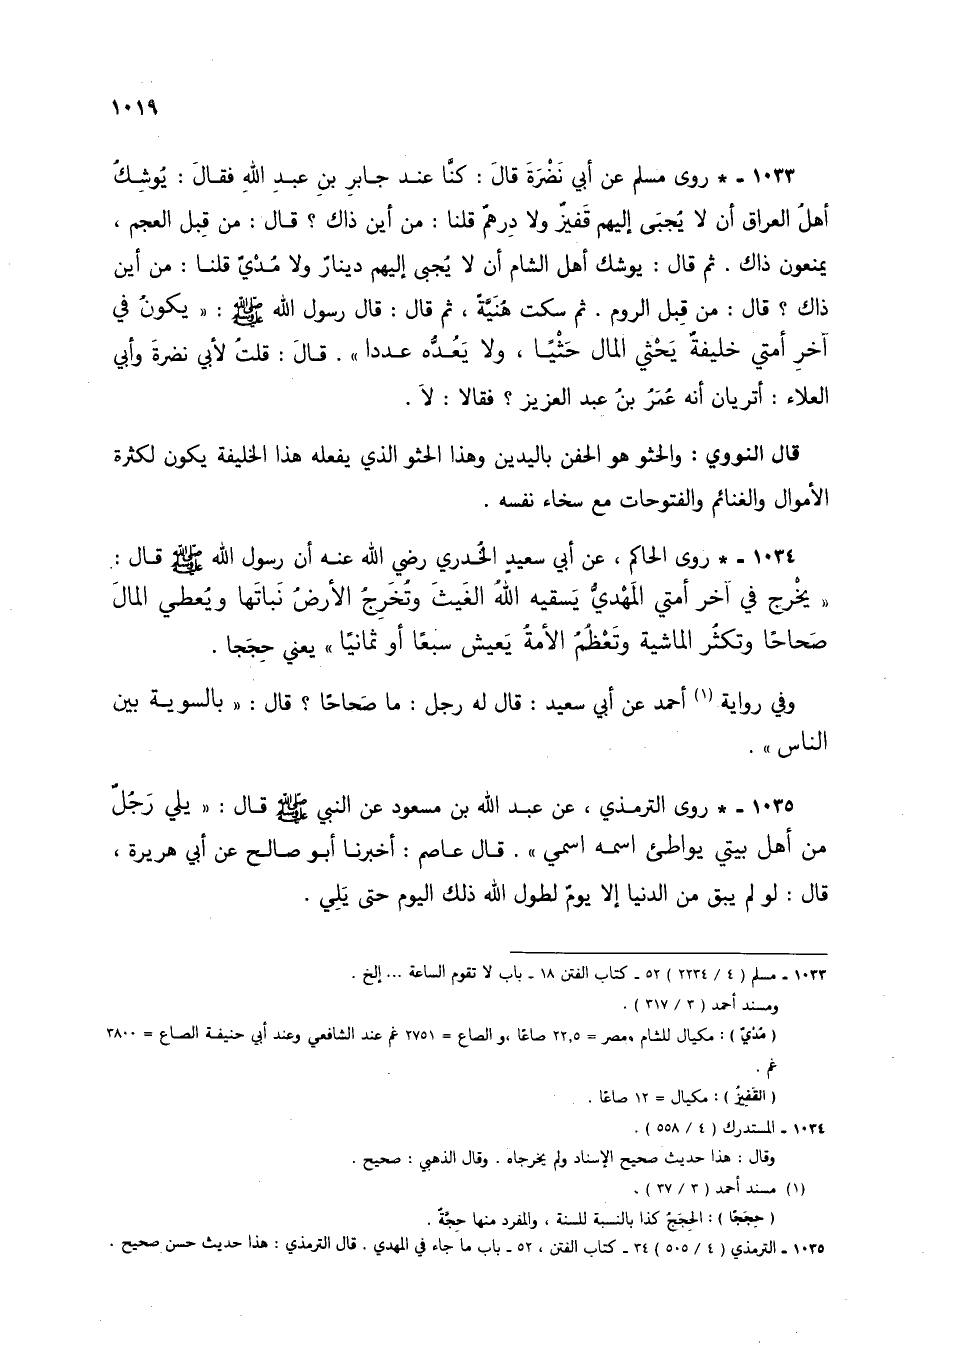 ١٠١٩
١٠٣٣ - * روى مسلم عن أبي نَضْرَةَ قالَ : كنَّا عند جابرِ بنِ عبدِ اللهِ فقالَ : يُوشِكُ
أهلُ العراق أن لا يُجبَى إليهم قَفيزٌ ولا دِرهمٌ قلنا : من أين ذاك ؟ قال : من قِبل العجم ،
يمنعون ذاك . ثم قال : يوشك أهل الشام أن لا يُجبى إليهم دينارٌ ولا مُدْيٌ قلنا : من أين
ذاك ؟ قال : من قِبل الروم . ثم سكت هُنَيَّةً ، ثم قال : قال رسول الله ﷺ : « يكونُ في
آخرِ أمتي خليفةٌ يَحْثي المال حَثْيًا ، ولا يَعُدُّه عددا » . قالَ : قلتُ لأبي نضرةَ وأبي
العلاء : أتريان أنه عمَرُ بنُ عبد العزيز ؟ فقالا : لاَ .
قال النووي : والحثو هو الحفن باليدين وهذا الحثو الذي يفعله هذا الخليفة يكون لكثرة
الأموال والغنائم والفتوحات مع سخاء نفسه .
١٠٣٤ - * روى الحاكم ، عن أبي سعيدٍ الخُدري رضي الله عنه أن رسول الله ﷺ قال :
« يخْرج في آخر أمتي المَهْديُّ يَسقيه اللهُ الغَيثَ وتُخَرِجُ الأرضُ نَباتَها ويُعطي المالَ
صَحاحًا وتكثُر الماشية وتَعْظُمُ الأمةُ يَعيش سبعًا أو ثمانيًا » يعني حِجَجا .
وفي رواية (١) أحمد عن أبي سعيد : قال له رجل : ما صَحاحًا ؟ قال : « بالسوية بين
الناس » .
١٠٣٥ - * روى الترمذي ، عن عبد الله بن مسعود عن النبي ﷺ قال : « يلي رَجُلٌ
من أهل بيتي يواطئ اسمه اسمي » . قال عاصم : أخبرنا أبو صالح عن أبي هريرة ،
قال : لو لم يبق من الدنيا إلا يومٌ لطول الله ذلك اليوم حتى يَلِي .
١٠٣٣ - مسلم ( ٤ / ٢٢٣٤ ) ٥٢ - كتاب الفتن ١٨ - باب لا تقوم الساعة ... إلخ .
ومسند أحمد ( ٣ / ٣١٧ ) .
( مُدْيٌ ) : مكيال للشام ومصر = ٢٢,٥ صاعًا ،و الصاع = ٢٧٥١ غم عند الشافعي وعند أبي حنيفة الصاع = ٣٨٠٠
غم .
( القَفيزُ ) : مكيال = ١٢ صاعًا .
١٠٣٤ - المستدرك ( ٤ / ٥٥٨ ) .
وقال : هذا حديث صحيح الإسناد ولم يخرجاه . وقال الذهبي : صحيح .
(١) مسند أحمد ( ٣ / ٣٧ ) .
( حِجَجًا ) : الحِجَجُ كذا بالنسبة للسنة ، والمفرد منها حِجَّةٌ .
١٠٣٥ - الترمذي ( ٤ / ٥٠٥ ) ٣٤ - كتاب الفتن ، ٥٢ - باب ما جاء في المهدي . قال الترمذي : هذا حديث حسن صحيح .